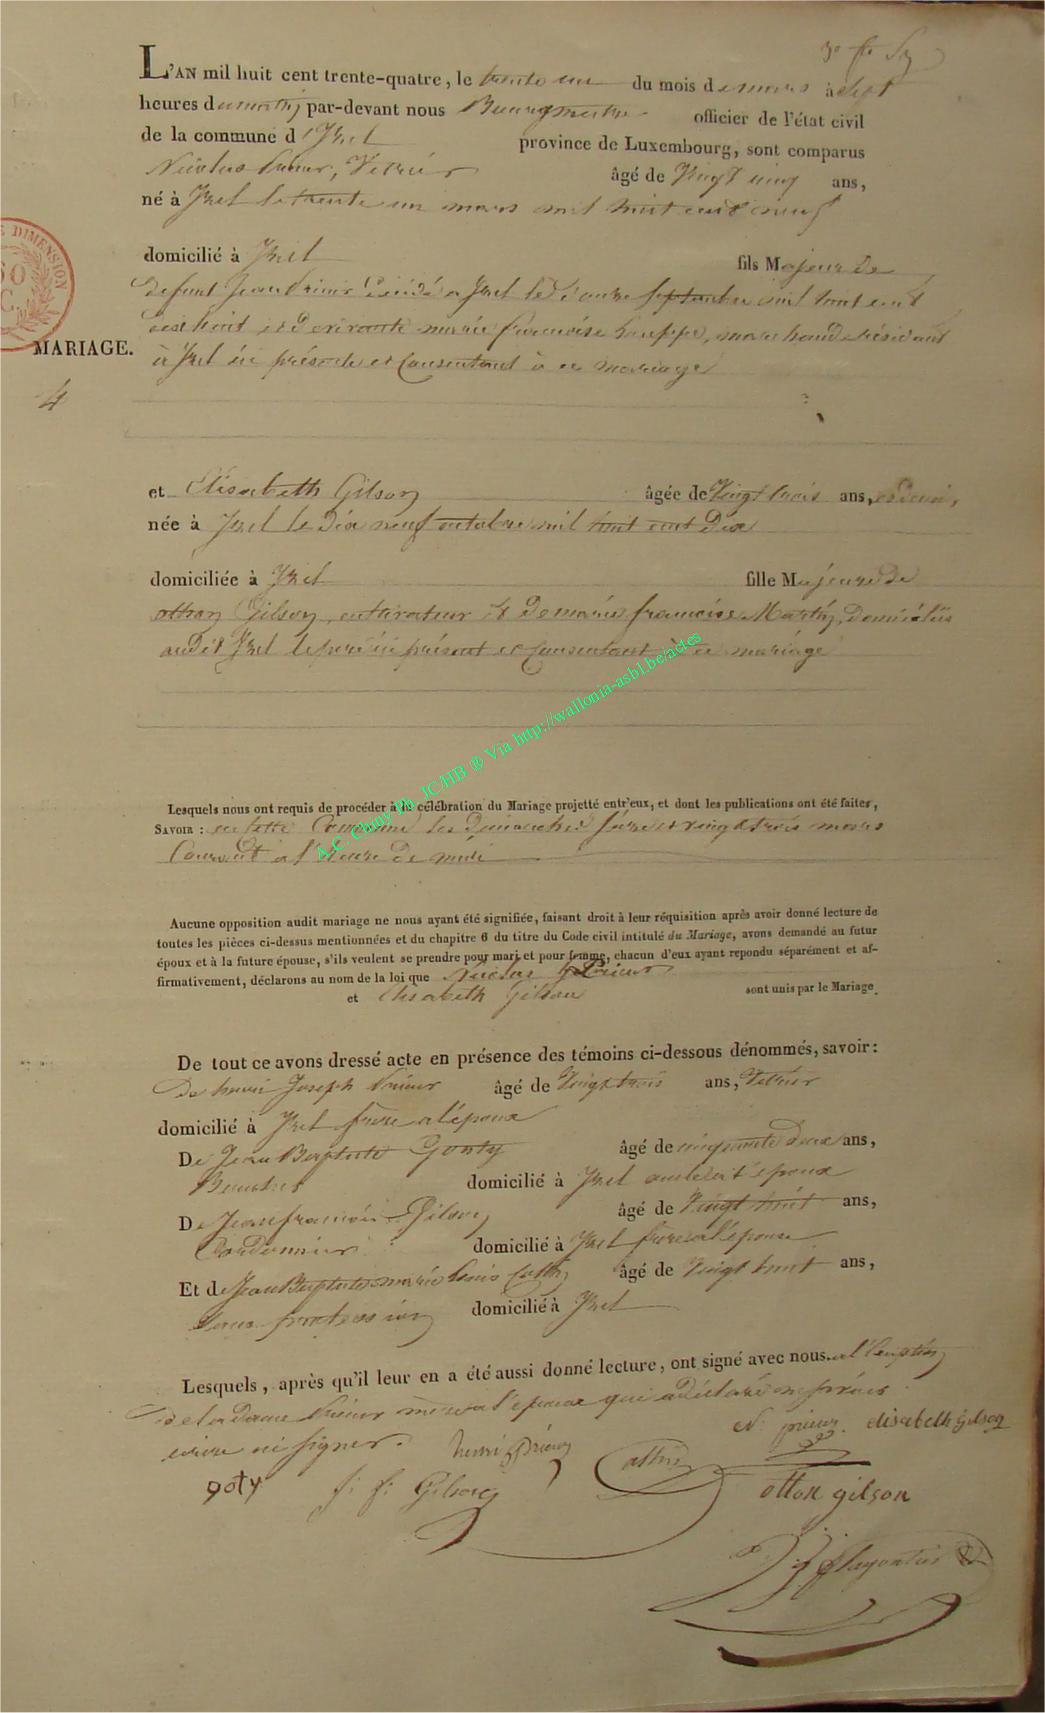 L'AN mil huit cent trente-quatre, le trente un du mois de mars à sept
heures du matin par-devant nous Bourgmestre officier de l'état civil
de la commune d'Izel province de Luxembourg, sont comparus
Nicolas Prieur, âgé de Vingt cinq ans,
né à Izel le trente un mars mil huit cent neuf
DIMENSION
domicilié à Izel fils Majeur de
défunt Jean Prieur décédé a Izel le septembre mil huit cent
et de marie françoise résidant
MARIAGE. à Izel ici présente et Consentant à ce mariage
4
et Elisabeth Gilson âgée de Vingt trois ans,
née à Izel le Dix neuf octobre mil huit cent Dix
domiciliée à Izel fille Majeure de
othon Gilson, cultivateur & De marie françoise Martin, Domiciliés
audit Izel le père ici présent et Consentant à ce mariage
A.C. Chiny Ph. JCHB ® Via http://wallonia-asbl.be/actes
Lesquels nous ont requis de procéder à la célébration du Mariage projetté entr'eux, et dont les publications ont été faites,
SAVOIR : en cette Commune les Dimanches seize et vingt trois mars
Courant a l'heure De midi
Aucune opposition audit mariage ne nous ayant été signifiée, faisant droit à leur réquisition après avoir donné lecture de
toutes les pièces ci-dessus mentionnées et du chapitre 6 du titre du Code civil intitulé du Mariage, avons demandé au futur
époux et à la future épouse, s'ils veulent se prendre pour mari et pour femme, chacun d'eux ayant repondu séparément et af-
firmativement, déclarons au nom de la loi que Nicolas Prieur
et Elisabeth Gilson sont unis par le Mariage.
De tout ce avons dressé acte en présence des témoins ci-dessous dénommés, savoir :
De henri Joseph Prieur âgé de Vingt trois ans,
domicilié à Izel frère a l'époux
De Jean Baptiste Goty âgé de cinquante deux ans,
domicilié à Izel oncle a l'époux
De Jean françois Gilson âgé de Vingt huit ans,
Cordonnier domicilié à Izel frère a l'épouse
Et de Jean Baptiste marie louis âgé de Vingt huit ans,
sans profession domicilié à Izel
Lesquels, après qu'il leur en a été aussi donné lecture, ont signé avec nous. a l'exception
de la Dame Prieur mère a l'époux qui a déclaré ne savoir
écrire ni signer. N. prieur elisabeth gilson
henri prieur
goty j: f: Gilson otton gilson